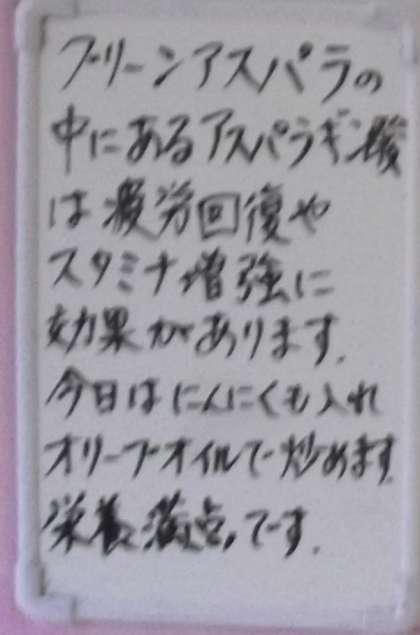 グリーンアスパラの
中にあるアスパラギン酸
は疲労回復や
スタミナ増強に
効果があります.
今日はにんにくも入れ
オリーブオイルで炒めます.
栄養満点.です.